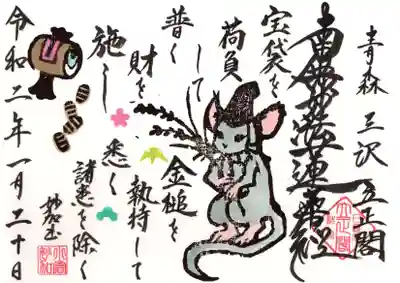 青森 三沢 立正閣
南無妙法蓮華経
宝袋を
荷負
して
普く
財を
施し
金槌を
執持して
悉く
諸患を除く
妙加玉
令和二年一月二十日